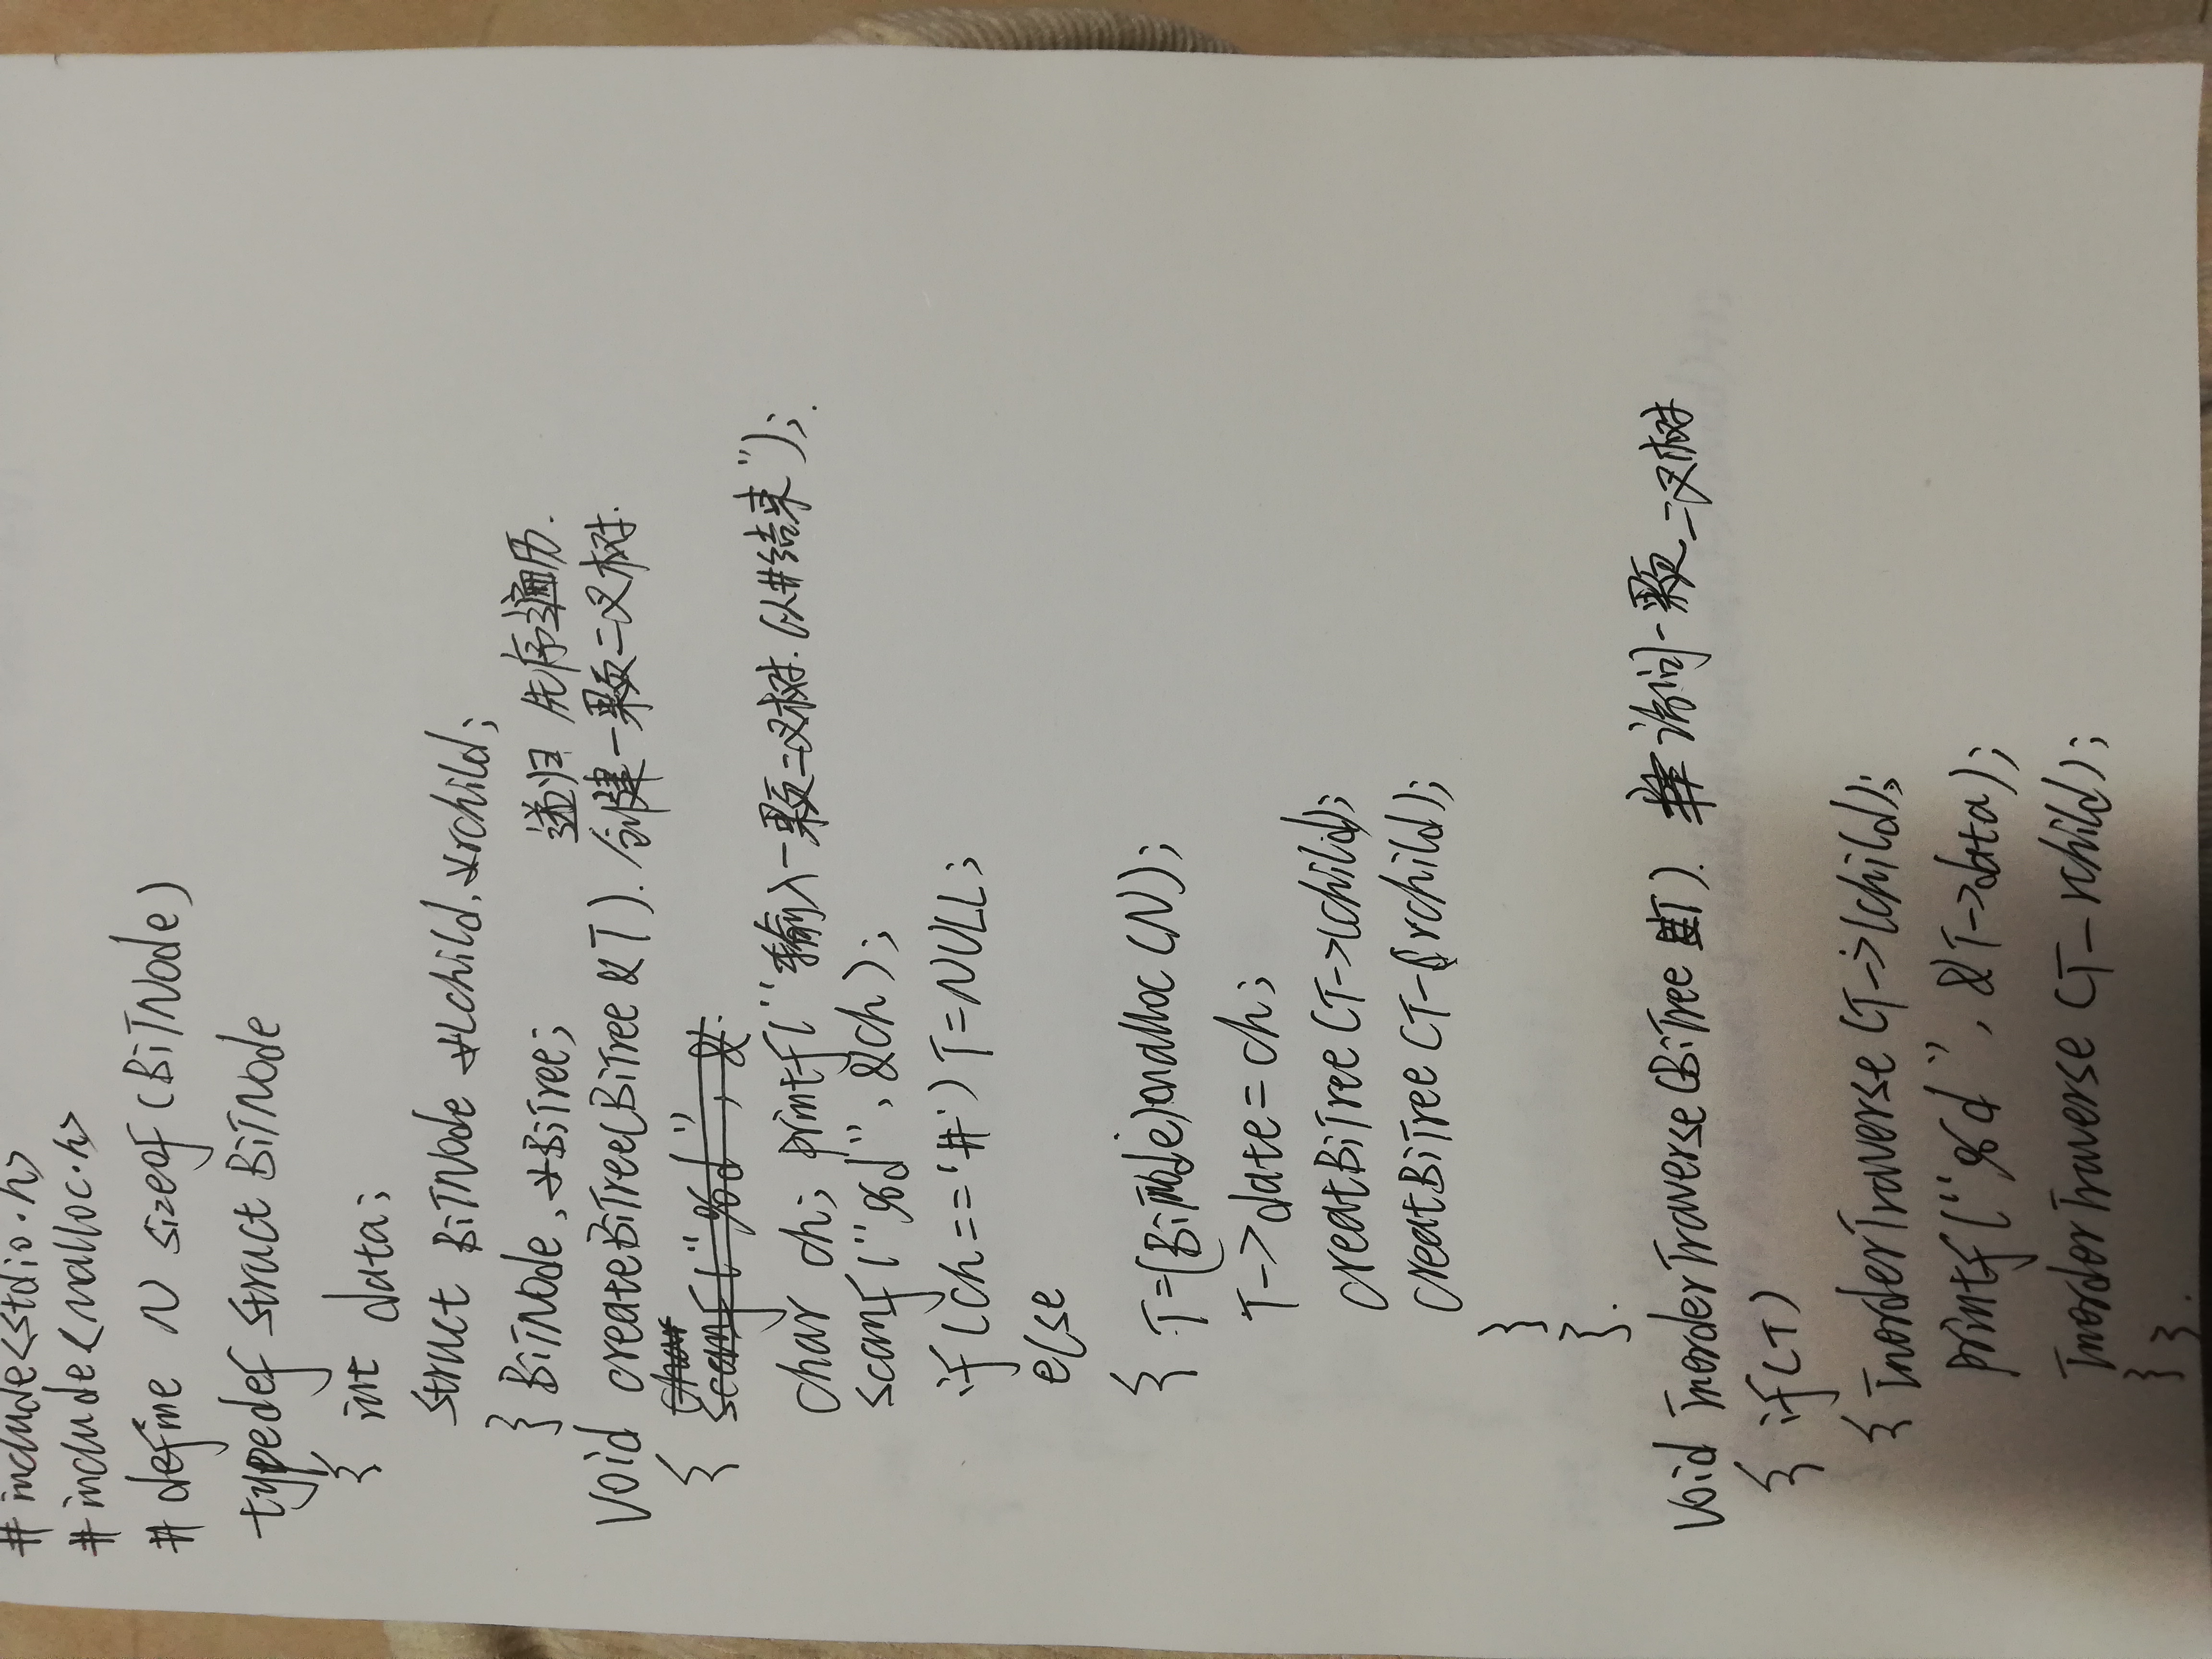 #include<stdio.h>
#include<malloc.h>
#define N sizeof(BiTNode)
typedef struct BiTNode
{ int data;
struct BiTNode *lchild,*rchild;
} BiTNode,*BiTree; 递归 先序遍历.
Void createBiTree(BiTree &T). 创建一颗二叉树.
{ scanf("%d",&
char ch; printf("输入一颗二叉树.以#结束");.
scanf("%d",&ch);
if(ch=='#')T=NULL;
else
{ T=(BiTNode)malloc(N);
T->date=ch;
creatBiTree(T->lchild);
creatBiTree(T-rchild);
}
}.
Void InorderTraverse(BiTree T). 访问一颗二叉树
{ if(T)
{ InorderTraverse(T->lchild);
printf("%d",&T->data);
InorderTraverse(T-rchild);
} }.